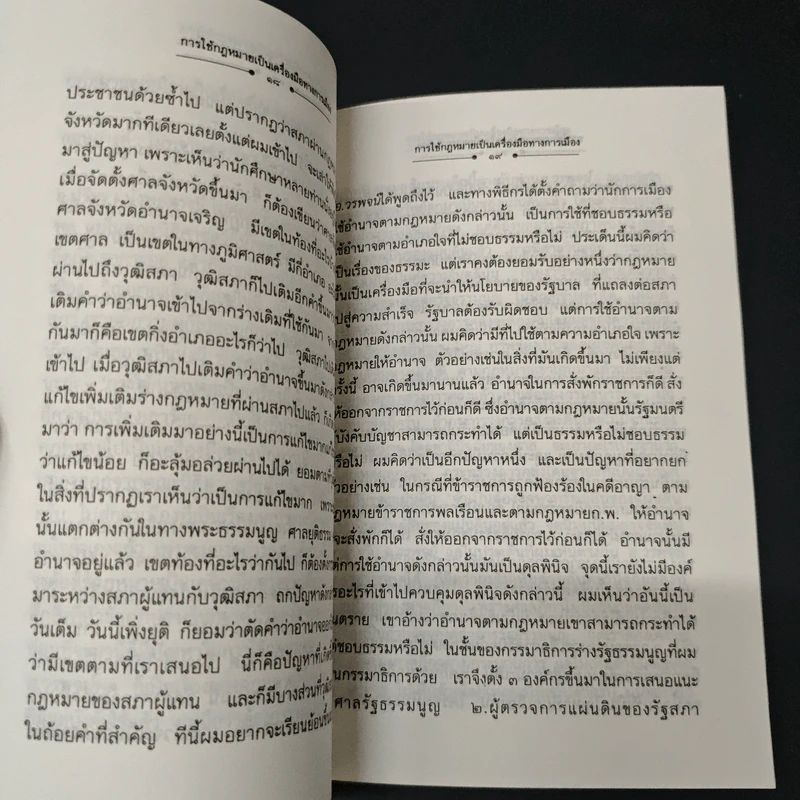 การใช้กฎหมายเป็นเครื่องมือทางการเมือง
๑๘
ประชาชนด้วยซ้ำไป แต่ปรากฏว่าสภาผ่านกฎหมาย
จังหวัดมากทีเดียวเลยตั้งแต่ผมเข้าไป จะเล่าให้
มาสู่ปัญหา เพราะเห็นว่านักศึกษาหลายท่าน
เมื่อจัดตั้งศาลจังหวัดขึ้นมา ก็ต้องเขียนว่า
ศาลจังหวัดอำนาจเจริญ มีเขตในท้องที่อะไร
เขตศาล เป็นเขตในทางภูมิศาสตร์ มีกี่อำเภอ
ผ่านไปถึงวุฒิสภา วุฒิสภาก็ไปเติมอีกคำขึ้นมา
เติมคำว่าอำนาจเข้าไปจากร่างเดิมที่ใช้กันมา
กันมาก็คือเขตกิ่งอำเภออะไรก็ว่าไป วุฒิสภาไป
เข้าไป เมื่อวุฒิสภาไปเติมคำว่าอำนาจขึ้นมา
แก้ไขเพิ่มเติมร่างกฎหมายที่ผ่านสภาไปแล้ว
มาว่า การเพิ่มเติมมาอย่างนี้เป็นการแก้ไขมาก
ว่าแก้ไขน้อย ก็อะลุ้มอล่วยผ่านไปได้ ยอมตาม
ในสิ่งที่ปรากฏเราเห็นว่าเป็นการแก้ไขมาก เพราะ
นั้นแตกต่างกันในทางพระธรรมนูญ ศาลยุติธรรม
อำนาจอยู่แล้ว เขตท้องที่อะไรว่ากันไป ก็ต้องตั้ง
มาระหว่างสภาผู้แทนกับวุฒิสภา ถกปัญหา
วันเต็ม วันนี้เพิ่งยุติ ก็ยอมว่าตัดคำว่าอำนาจ
ว่ามีเขตตามที่เราเสนอไป นี่ก็คือปัญหาที่
กฎหมายของสภาผู้แทน และก็มีบางส่วนที่
ในถ้อยคำที่สำคัญ ทีนี้ผมอยากจะเรียนย้อน
การใช้กฎหมายเป็นเครื่องมือทางการเมือง
๑๙
อ.วรพจน์ได้พูดถึงไว้ และทางพิธีกรได้ตั้งคำถามว่านักการเมือง
ใช้อำนาจตามกฎหมายดังกล่าวนั้น เป็นการใช้ที่ชอบธรรมหรือ
ใช้อำนาจตามอำเภอใจที่ไม่ชอบธรรมหรือไม่ ประเด็นนี้ผมคิดว่า
เป็นเรื่องของธรรมะ แต่เราคงต้องยอมรับอย่างหนึ่งว่ากฎหมาย
นั้นเป็นเครื่องมือที่จะนำให้นโยบายของรัฐบาล ที่แถลงต่อสภา
ไปสู่ความสำเร็จ รัฐบาลต้องรับผิดชอบ แต่การใช้อำนาจตาม
กฎหมายดังกล่าวนั้น ผมคิดว่ามีที่ไปใช้ตามความอำเภอใจ เพราะ
กฎหมายให้อำนาจ ตัวอย่างเช่นในสิ่งที่มันเกิดขึ้นมา ไม่เพียงแต่
ครั้งนี้ อาจเกิดขึ้นมานานแล้ว อำนาจในการสั่งพักราชการก็ดี สั่ง
ให้ออกจากราชการไว้ก่อนก็ดี ซึ่งอำนาจตามกฎหมายนั้นรัฐมนตรี
บังคับบัญชาสามารถกระทำได้ แต่เป็นธรรมหรือไม่ชอบธรรม
หรือไม่ ผมคิดว่าเป็นอีกปัญหาหนึ่ง และเป็นปัญหาที่อยากยก
ตัวอย่างเช่น ในกรณีที่ข้าราชการถูกฟ้องร้องในคดีอาญา ตาม
กฎหมายข้าราชการพลเรือนและตามกฎหมายก.พ. ให้อำนาจ
จะสั่งพักก็ได้ สั่งให้ออกจากราชการไว้ก่อนก็ได้ อำนาจนั้นมี
แต่การใช้อำนาจดังกล่าวนั้นมันเป็นดุลพินิจ จุดนี้เรายังไม่มีองค์
กรอะไรที่เข้าไปควบคุมดุลพินิจดังกล่าวนี้ ผมเห็นว่าอันนี้เป็น
อันตราย เขาอ้างว่าอำนาจตามกฎหมายเขาสามารถกระทำได้
แต่ชอบธรรมหรือไม่ ในชั้นของกรรมาธิการร่างรัฐธรรมนูญที่ผม
เป็นกรรมาธิการด้วย เราจึงตั้ง ๓ องค์กรขึ้นมาในการเสนอแนะ
ศาลรัฐธรรมนูญ ๒.ผู้ตรวจการแผ่นดินของรัฐสภา